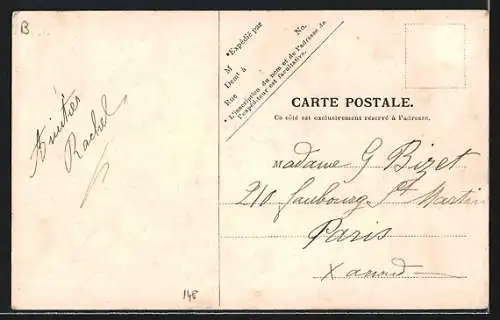 B
*Expédié par
No.
M
Demt à
Rue
*L'inscription du nom et de l'adresse de
l'expéditeur est facultative.
CARTE POSTALE.
Ce côté est exclusivement réservé à l'adresse.
Amitiés
Rachel
Madame G Bizet
210 Faubourg St Martin
Paris
X arrond
148